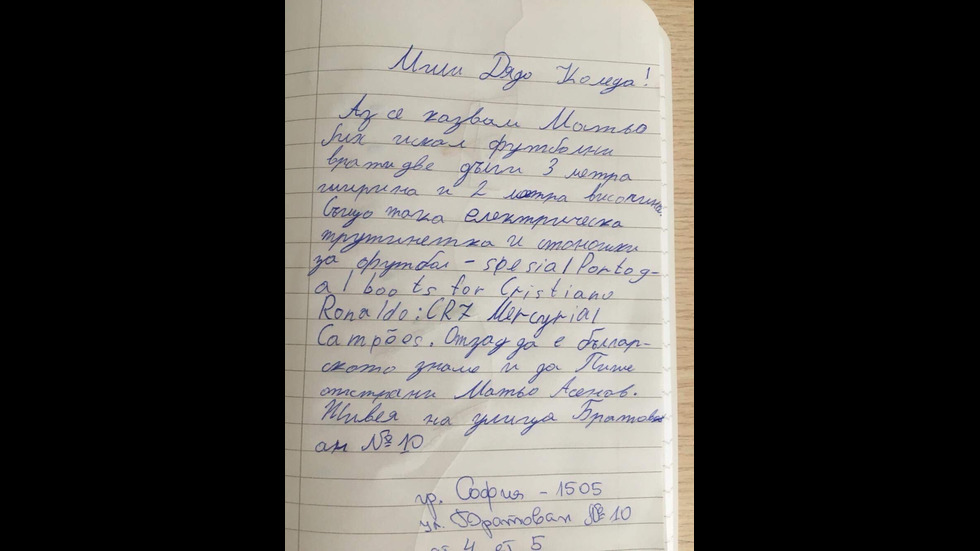 Мили Дядо Коледа!
Аз се казвам Матьо
бих искал футболни
врати две дъги 3 метра
ширина и 2 метра височина.
Също така електрическа
тротинетка и стоножки
за футбол - spesial Portog-
al boots for Cristiano
Ronaldo: CR7 Mercyrial
Campões. Отзад да е българ-
ското знаме и да Пише
отстрани Матьо Асенов.
Живея на улица Братов
ан № 10
гр. София - 1505
ул. Братован № 10
ет 5